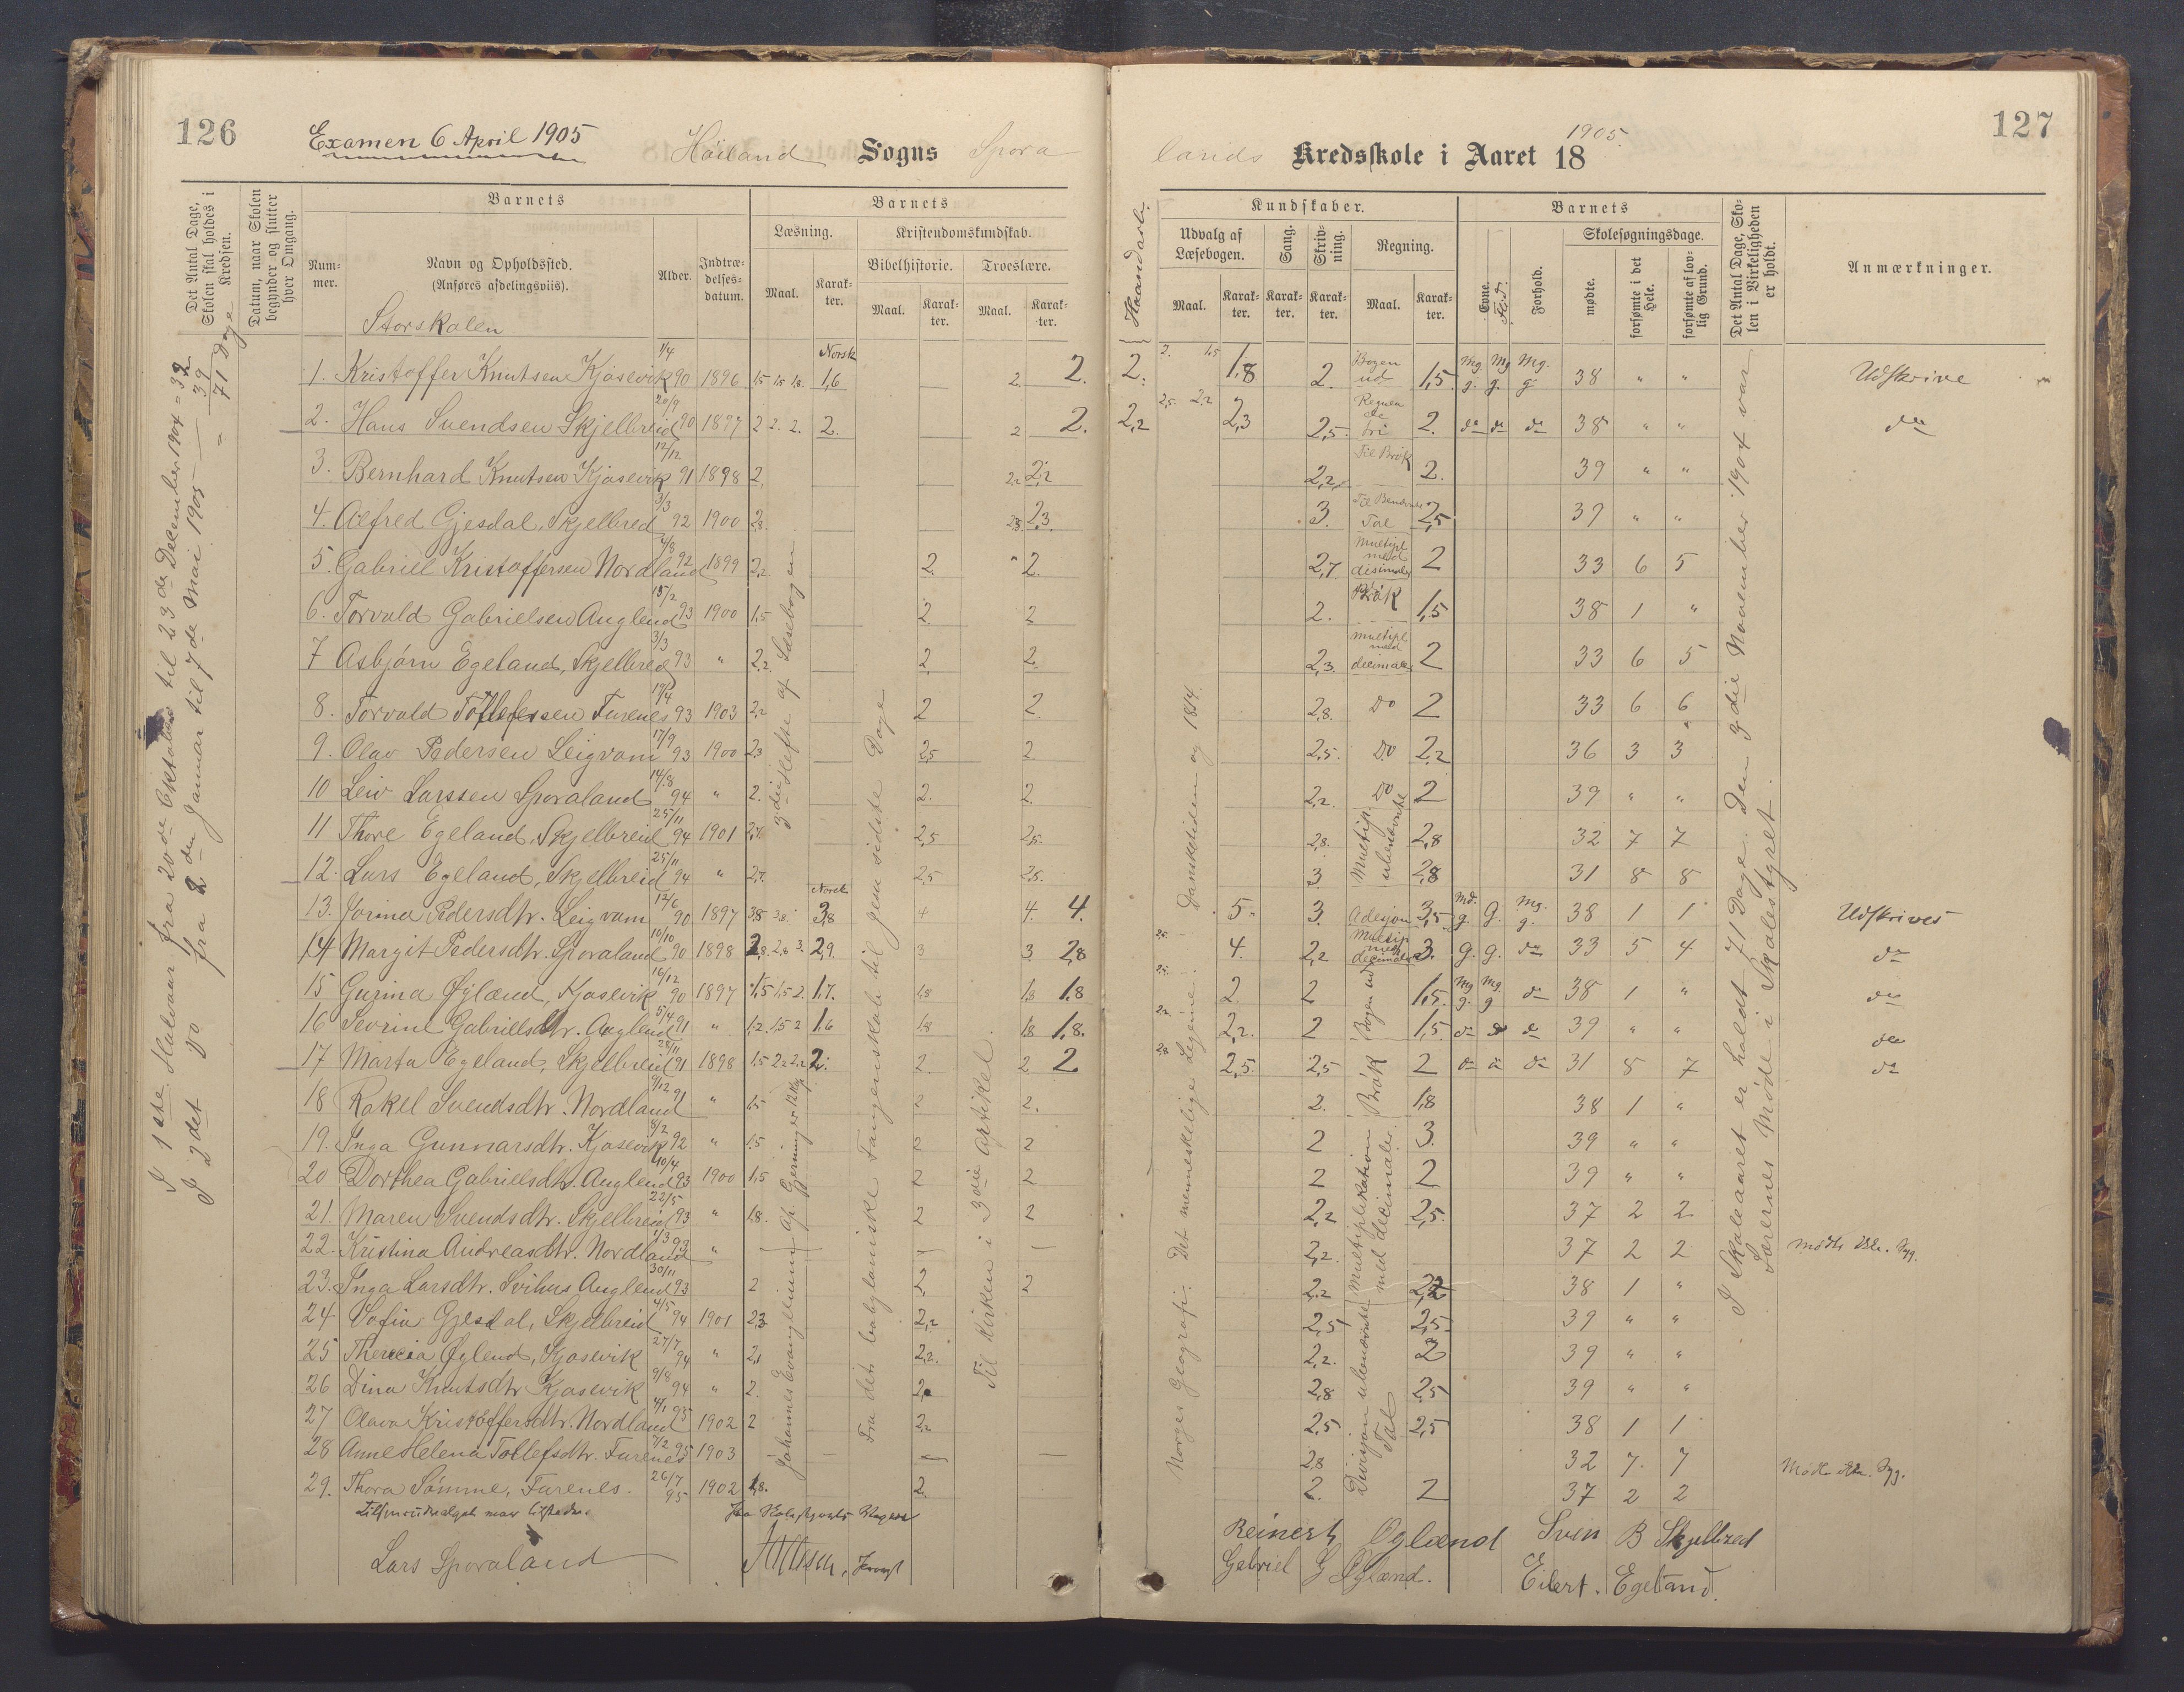 126
Examen 6 April 1905 Höiland Sogns Spora
Det Antal Dage, Skolen skal holdes i Kredsen.
Datum, naar Skolen begynder og slutter hver Omgang.
Barnets
Nummer.
Navn og Opholdssted.
(Anføres afdelingsviis).
Alder.
Indtrædelsesdatum.
Barnets
Læsning.
Maal. Karakter.
Kristendomskundskab.
Bibelhistorie. Troeslære.
Maal. Karakter. Maal. Karakter.
Storskolen
Norsk
1. Kristoffer Knutsen Kjosevik 1/4 90 1896 1,5 1,5 1,8. 1,6 2. 2.
2. Hans Svendsen Skjelbreid 20/9 90 1897 2 2. 2. 2. 2 2.
3. Bernhard Knutsen Kjosevik 12/12 91 1898 2, 2,2 2,2
4. Alfred Gjesdal, Skjelbred 3/3 92 1900 2,3. 2,3. 2,3.
5. Gabriel Kristoffersen Nordland 4/8 92 1899 2,2 2. " 2.
6. Torvald Gabrielsen Auglend 15/2 93 1900 1,5 2. 2
7 Asbjørn Egeland, Skjelbred 3/3 93 " 2,2 2 2.
8. Torvald Tollefssen Furenes 19/4 93 1903 2,2 2 2.
9. Olav Pedersen Leigvam 17/9 93 1900 2,3 2,5 2
10 Leiv Larssen Sporaland 14/8 94 " 2. 2. 2.
11 Thore Egeland, Skjelbreid 25/11 94 1901 2,7 2,5 2,5.
12. Lars Egeland, Skjelbreid 25/11 94 " 2,7. 2,5 2,5.
Norsk
13. Jorina Pedersdtr. Leigvam 12/6 90 1897 3,8 3,8. 3,8 4 4. 4.
14 Margit Pedersdtr. Sporaland 10/10 90 1898 2,8. 2,8 3. 2,9. 3 3. 2,8
15 Gurina Øylænd, Kjosevik 16/12 90 1897 1,5 1,5 2. 1,7. 1,8 1,8 1,8
16 Sevrine Gabrielsdtr. Auglend 5/4 91 " 1,2. 1,5 2 1,6 1,8 1,8 1,8.
17 Marta Egeland, Skjelbreid 28/11 91 1898 1,5 2,2 2,2 2. 2. 2. 2
18 Rakel Svendsdtr. Nordland 9/12 91 " 1,5 2 2.
19. Inga Gunnarsdtr. Kjosevik 8/2 92 " 1,5 2 2
20 Dorthea Gabrielsdtr. Auglend 10/4 93 1900 1,5 2 2
21. Maren Svendsdtr. Skjelbreid 22/5 93 " 1,8. 2 2
22. Kristina Andreasdtr. Nordland 1/3 93 "
23. Inga Larsdtr. Svihus Auglend 30/11 93 2 2 2
24 Sofia Gjesdal, Skjelbreid 4/5 94 1901 2,3 2,2
25 Therecia Øylend, Kjosevik 27/7 94 " 2,1 2,2.
26 Dina Knutsdtr Kjosevik 9/8 94 " 2. 2
27 Olava Kristoffersdtr. Nordland 4/1 95 1902 2 2,2
28 Anne Helena Tollefsdtr. Furenes 7/2 95 1903
29. Thora Sømme, Furenes. 26/7 95 1902 1,8. 2.
3die Hefte af Læsebogen
Johannes Evangelium, Ap. Gjerninger
Fra det babyloniske Fangenskab til gens sidste Dage
Til Kirken i 3die Artikel
I 1ste Halvaar fra 20de Oktober til 23de December 1904 = 32
I 2det Do fra 2den Januar til 7de Mai 1905 — 39
= 71 Dage
Lars Sporaland
127
lands Kredsskole i Aaret 18 1905.
Haandarb.
Kundskaber.
Udvalg af Læsebogen.
Maal. Karakter.
Sang. Karakter.
Skrivning. Karakter.
Regning.
Maal. Karakter.
Barnets
Evne. Flid. Forhold.
Skolesøgningsdage.
mødte. forsømte i det Hele. forsømte af lovlig Grund.
Det Antal Dage, Skolen i Virkeligheden er holdt.
Anmærkninger.
2. 2. 1,5 1,8 2. Bogen ud 1,5. Mg. g. Mg g. Mg. g 38 " " Udskrive
2,2 2,5. 2,2 2,3 2,5. Regu de tri 2. do do do 38 " " do
2,2. Til Brøk 2. 39 " "
3. Til Benævnte Tal 2,5 39 " "
2,7 Multipl med desimaler 2 33 6 5
2. Brøk 1,5 38 1 "
2,3. multipl med decimaler 2 33 6 5
2,8. Do 2 33 6 6
2,5. Do 2,2 36 3 3
2,2. Do 2 39 " "
2,8. Multip. ubenævnte 2,8 32 7 7
3 2,8 31 8 8
5. 3. Adesjon 3,5 Md. g. g. Mg. g. 38 1 1 Udskrives
4. 2,2 Multip med decimaler 3. g. g. do 33 5 4 do
2 2 Bogen ud 1,5. Mg g. Mg. g do 38 1 " do
2,2. 2 1,5 do do do 39 " " do
2,5. 2,5 Brøk 2 do do do 31 8 7 do
2. 1,8 38 1 "
2 Multiplikation med decimaler. 3. 39 " "
2 2 39 " "
2,2 2,5. 37 2 2
2,2. 37 2 2
2,2 2,2 38 1 "
2,5 Divisjon ubenævnte Tal 2,5. 39 " "
2,2. 2 39 " "
2,8 2,5 39 " "
2,5 2,5 38 1 1
2,8 32 7. 7
2. 2 37 2 2
Norges Geografi. Det menneskelige Legeme. Dansketiden og 1814.
I Skoleaaret er holdt 71 Dage. Den 3die November 1904 var
Lærernes Møde i Skolestyret.
Reinert Oglænd Sven B Skjelbred
Gabriel G Øglænd. Eilert. Egeland.